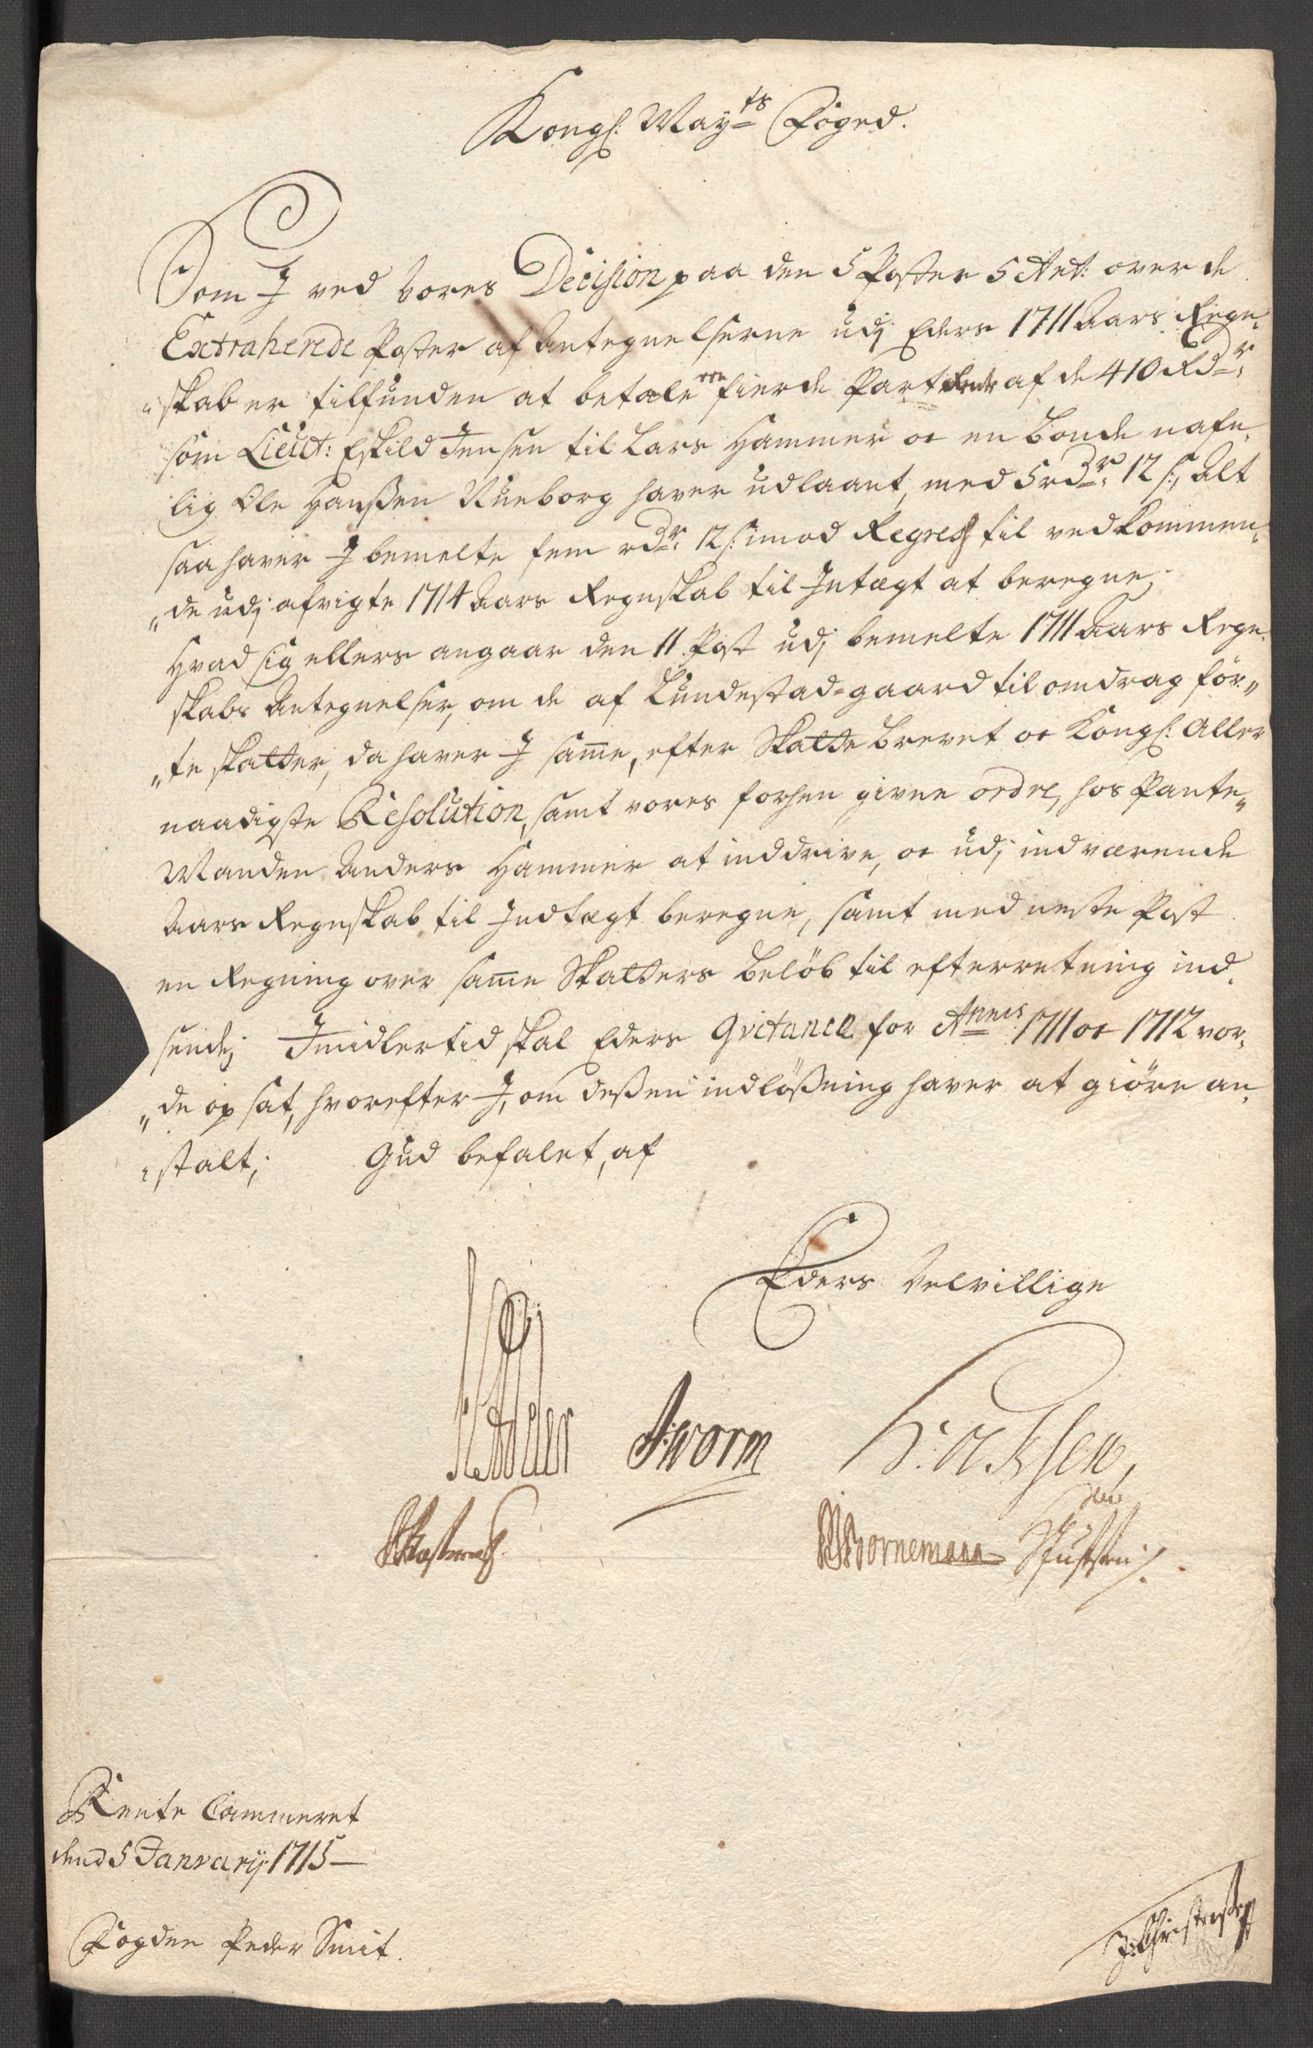 Kongl: May:ts Foged.
Som I ved vores Decision paa den 5 Poster 5 Ant: over de
Extraherede Poster af Antegnelserne udj Eders 1711 Aars Regn„
„skab er tilfunden at betale een fierde Part af de 410 Rdr:
som Lieut: Eskild Jensen til Lars Hammer oc en bonde nafn„
lig Ole Hanßen Rueborg haver udlaant, med 5 rdr: 12 s:, Alt
saa haver I bemelte fem rdr: 12 s: imod Regress til vedkommen„
„de udj afvigte 1714 Aars Regnskab til Intægt at beregne;
Hvad sig ellers angaar den 11 Post udj bemelte 1711 Aars Regn„
skabs Antegnelser, om de af Lundestad-gaard til omdrag för„
„te skatter, da haver I samme, efter Skatte brevet oc Kongl: Aller
naadigste Resolution, samt vores forhen givne ordre, hos Pante„
Manden Anders Hammer at inddrive, oc udj indværende
Aars Regnskab til Indtægt beregne, samt med neste Post
en Regning over samme Skatters beløb til efterretning ind„
sende; Imidlertid skal Eders Qvitance for Annis 1711 oc 1712 vor„
„de op sat, hvorefter I, om deßen indlößning haver at giöre an„
„stalt; Gud befalet, af
Eders Velvillige
Adeler JWorm
Bornemann
Rente Cammeret
dend 5 Janvarij 1715
Fogden Peder Smit.